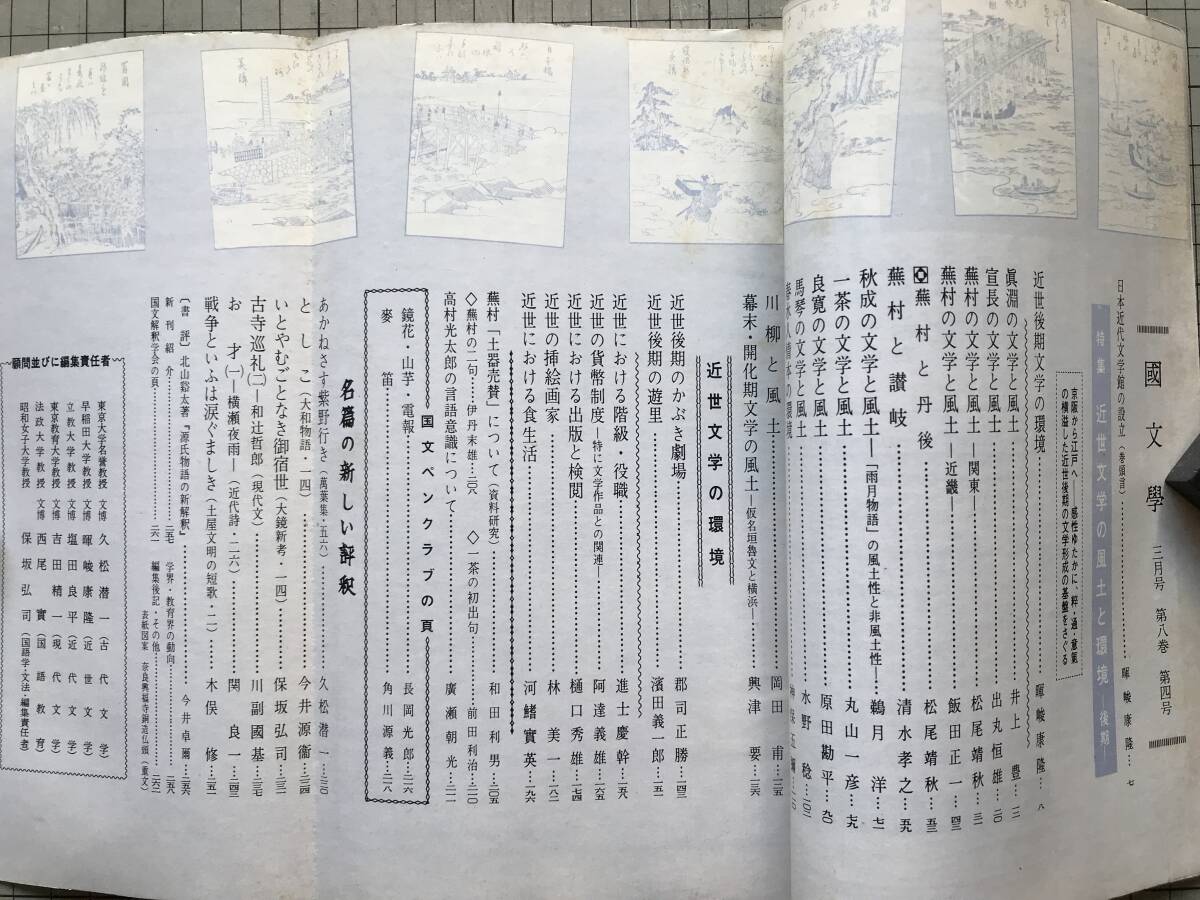 國文學 三月号 第八巻 第四号
日本近代文学館の設立(巻頭言)…暉峻康隆…七
特集 近世文学の風土と環境―後期―
京阪から江戸へ、感性ゆたかに、粋・通・意気
の横溢した近世後期の文学形成の基盤をさぐる
近世後期文学の環境…暉峻康隆…八
眞淵の文学と風土…井上豊…三
宣長の文学と風土…出丸恒雄…二〇
蕪村の文学と風土―関東―…松尾靖秋…三一
蕪村の文学と風土―近畿…飯田正一…四三
蕪村と丹後…松尾靖秋…五三
蕪村と讃岐…清水孝之…五九
秋成の文学と風土―「雨月物語」の風土性と非風土性―…鵜月洋…七一
一茶の文学と風土…丸山一彦…七九
良寛の文学と風土…原田勘平…九〇
馬琴の文学と風土…水野稔…一〇二
川柳と風土…岡田甫…一二五
幕末・開化期文学の風土―仮名垣魯文と横浜―…興津要…一三六
近世文学の環境
近世後期のかぶき劇場…郡司正勝…一四三
近世後期の遊里…濱田義一郎…一五一
近世における階級・役職…進士慶幹…一五九
近世の貨幣制度―特に文学作品との関連―…阿達義雄…一六五
近世における出版と検閲…樋口秀雄…一七四
近世の挿絵画家…林美一…一八二
近世における食生活…河鰭實英…一九六
蕪村「土器売賛」について(資料研究)…和田利男…二〇五
◇蕪村の二句…伊丹末雄…二〇八 ◇一茶の初出句…前田利治…二一〇
高村光太郎の言語意識について…廣瀬朝光…二一一
国文ペンクラブの頁
鏡花・山芋・電報…長岡光郎…二一六
麥笛…角川源義…二一八
名篇の新しい評釈
あかねさす紫野行き(萬葉集・五六)…久松潜一…二二〇
としこ(大和物語・一四)…今井源衞…二二四
いとやむごとなき御宿世(大鏡新考・一四)…保坂弘司…二三一
古寺巡礼(二)―和辻哲郎(現代文)…川副國基…二三七
お才(一)―横瀬夜雨―(近代詩・二六)…関良一…二四三
戦争といふは涙ぐましき(土屋文明の短歌・二)…木俣修…二五一
〔書評〕北山谿太著『源氏物語の新解釈』…今井卓爾…二五六
新刊紹介…二五七 学界・教育界の動向…二五八
国文解釈学会の頁…二六一 編集後記・その他…二六二
表紙図案 奈良興福寺銅造仏頭(東文)
顧問並びに編集責任者
東京大学名誉教授 文博 久松潜一(古代文学)
早稲田大学教授 文博 暉峻康隆(近世文学)
立教大学教授 文博 塩田良平(近代文学)
東京教育大学教授 文博 吉田精一(現代文学)
法政大学教授 文博 西尾實(国語教育)
昭和女子大学教授 保坂弘司(国語学文法・編集責任者)